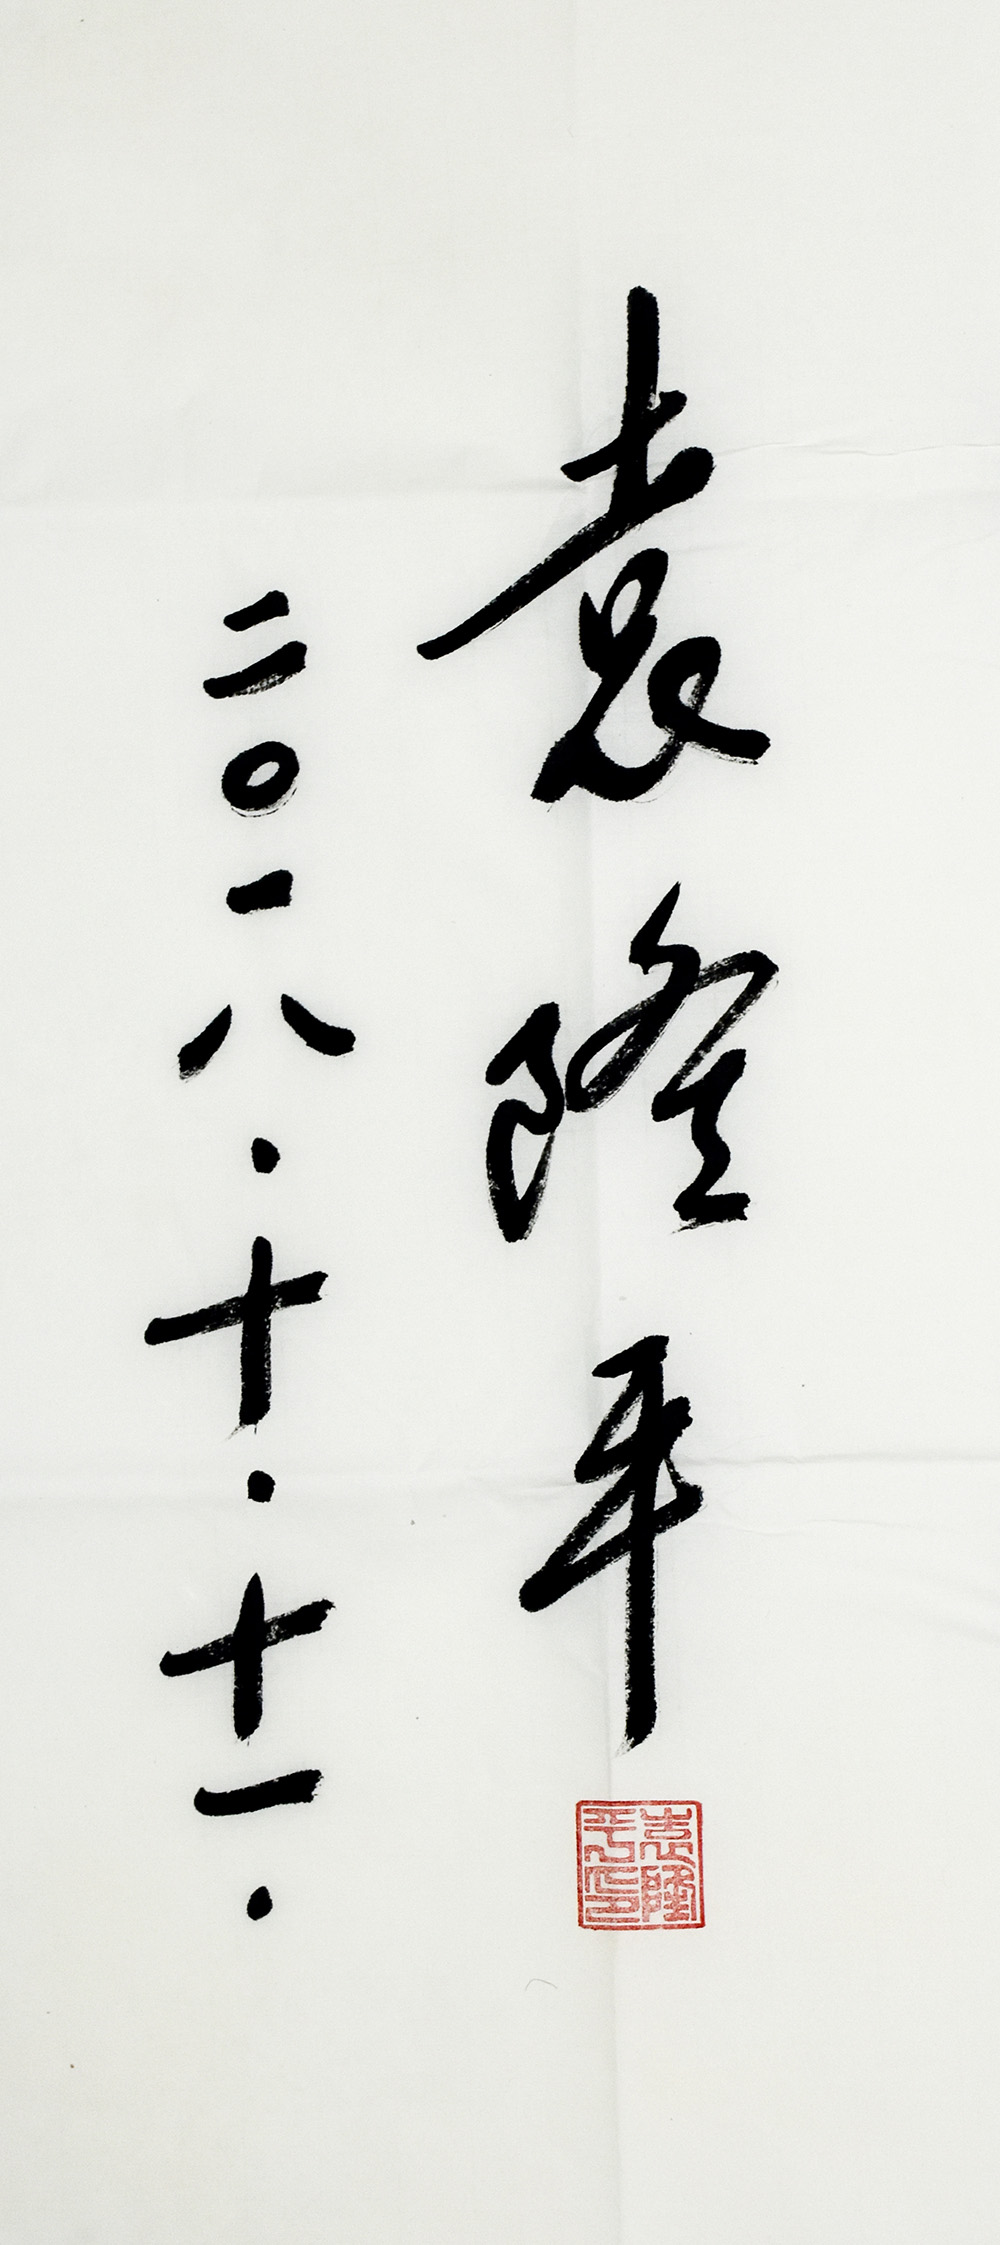 袁隆平
二〇一八.十.十一.
袁隆平印